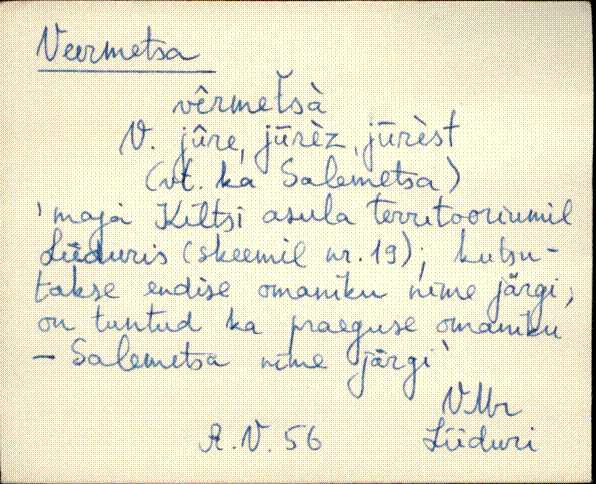 Veermetsa
vêrmet̆sà
V. jûre, jūrèz, jūrèst
(vt. ka Salemetsa)
'maja Kiltsi asula territooriumil
Liiduris (skeemil nr. 19); kutsu-
takse endise omaniku nime järgi;
on tuntud ka praeguse omaniku
- Salemetsa nime järgi'
VMr
A. V. 56 Liiduri